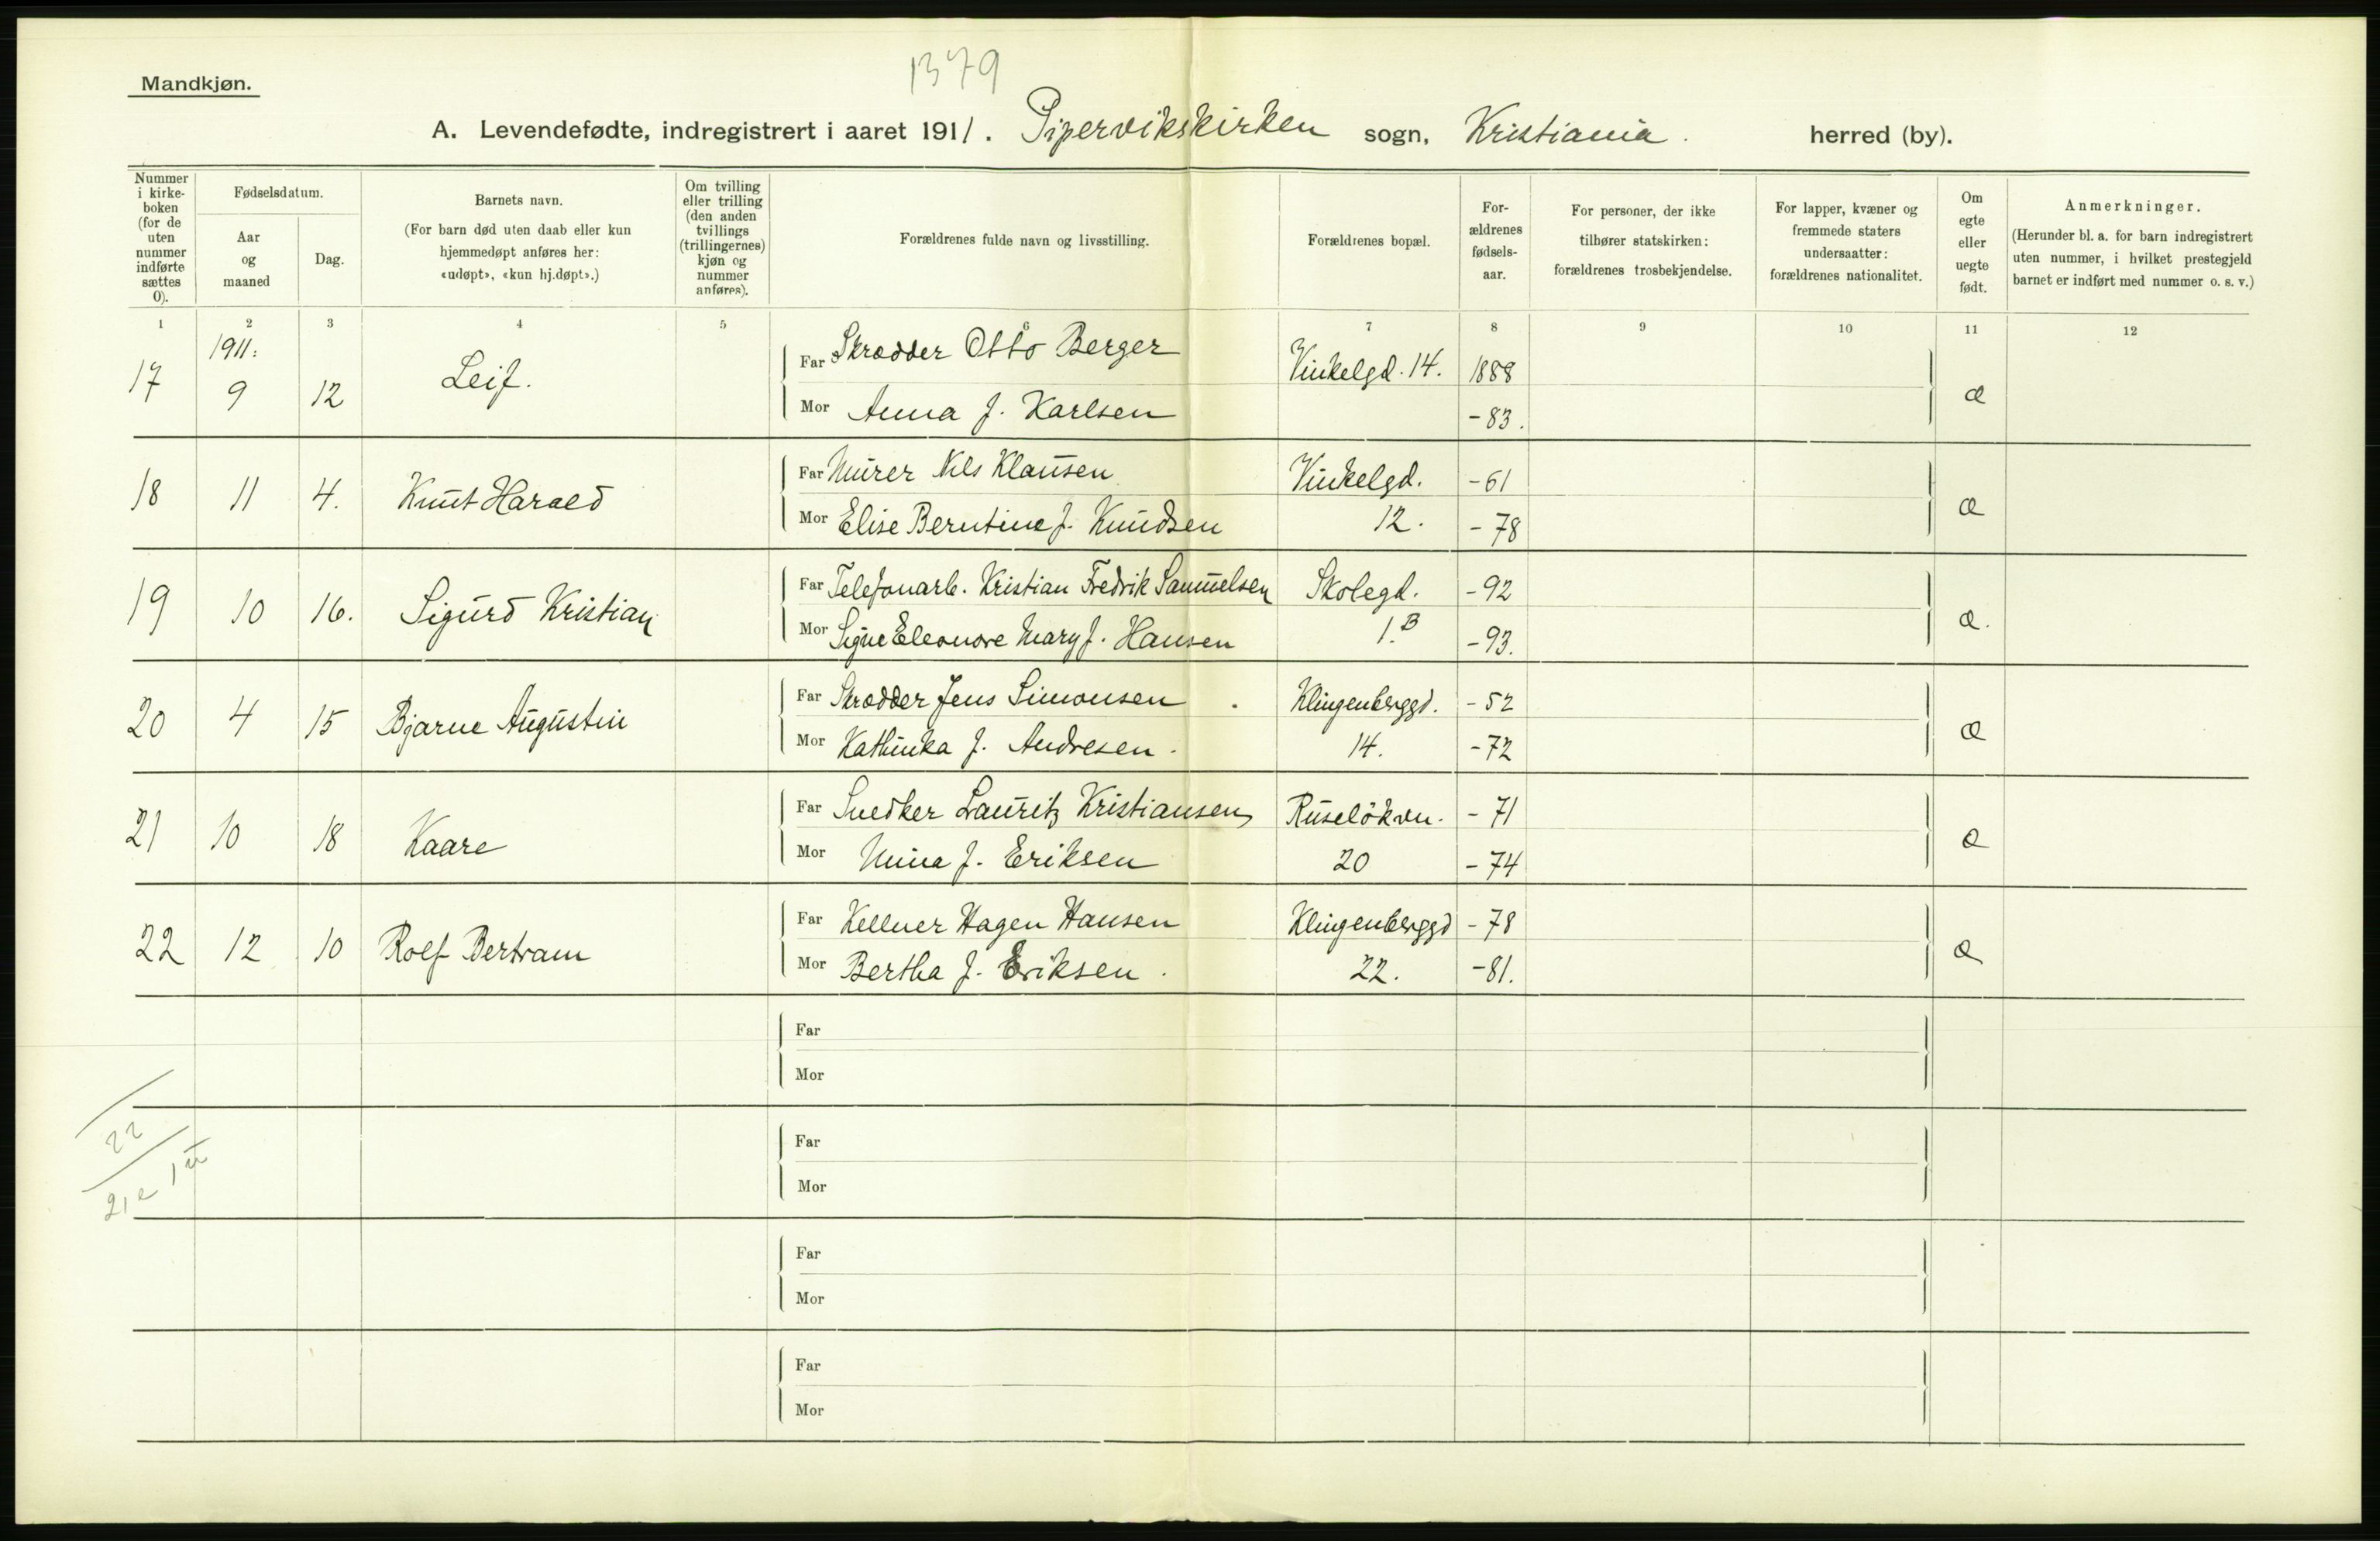 1379
Mandkjøn.
A. Levendefødte, indregistrert i aaret 1911. Pipervikskirken sogn, Kristiania. herred (by).
Nummer i kirkeboken (for de uten nummer indførte sættes 0).
Fødselsdatum.
Aar og maaned
Dag.
Barnets navn.
(For barn død uten daab eller kun hjemmedøpt anføres her: «udøpt», «kun hj.døpt».)
Om tvilling eller trilling (den anden tvillings (trillingernes) kjøn og nummer anføres).
Forældrenes fulde navn og livsstilling.
Forældrenes bopæl.
Forældrenes fødselsaar.
For personer, der ikke tilhører statskirken: forældrenes trosbekjendelse.
For lapper, kvæner og fremmede staters undersaatter: forældrenes nationalitet.
Om egte eller uegte født.
Anmerkninger.
(Herunder bl. a. for barn indregistrert uten nummer, i hvilket prestegjeld barnet er indført med nummer o. s. v.)
1 2 3 4 5 7 8 9 10 11 12
1911:
17 9 12 Leif. Far Skrædder Otto Berger Vinkelgd. 14. 1888 æ
Mor Anna f. Karlsen -83.
18 11 4. Knut Harald Far Murer Nils Klausen Vinkelgd. -61 æ
Mor Elise Berntine f. Knudsen 12. -78
19 10 16. Sigurd Kristian Far Telefonarb. Kristian Fredrik Samuelsen Skolegd. -92 æ.
Mor Signe Eleonore Mary f. Hansen 1.B -93.
20 4 15 Bjarne Augustin Far Skrædder Jens Simonsen Klingenberggd. -52 æ
Mor Kathinka f. Andresen. 14. -72
21 10 18 Kaare Far Snedker Lauritz Kristiansen Ruseløkvn. -71 æ
Mor Mina f. Eriksen 20 -74
22 12 10 Rolf Bertram Far Kellner Hagen Hansen Klingenberggd -78 æ
Mor Bertha f. Eriksen. 22. -81.
Far
Mor
22
21 e 1 u
Far
Mor
Far
Mor
Far
Mor